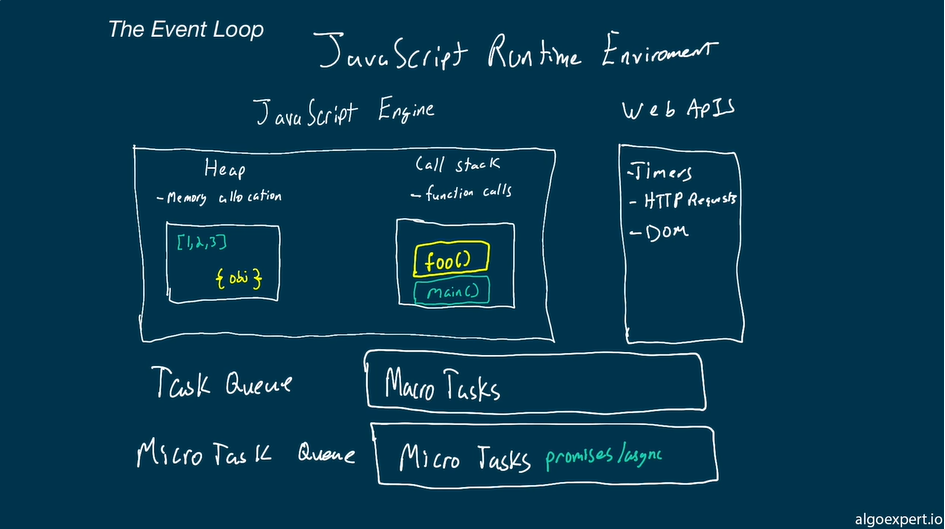 The Event Loop
JavaScript Runtime Enviroment
JavaScript Engine
Web APIs
Heap
- Memory allocation
[1,2,3]
{obj}
Call stack
- function calls
foo()
main()
- Timers
- HTTP Requests
- DOM
Task Queue
Macro Tasks
Micro Task Queue
Micro Tasks promises/async
algoexpert.io